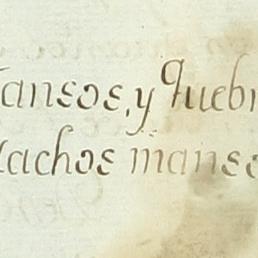 ansos, y quebr
achos manso